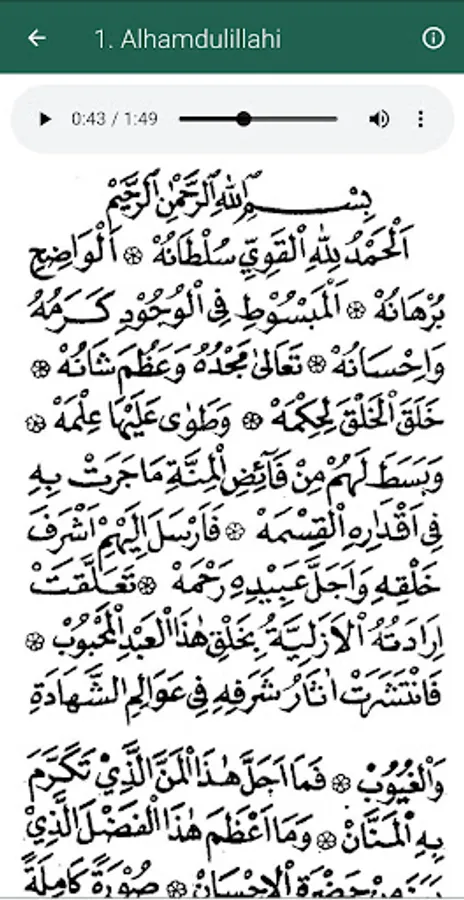 1. Alhamdulillahi
0:43 / 1:49
بِسْمِ اللهِ الرَّحْمٰنِ الرَّحِيْمِ
اَلْحَمْدُ لِلّٰهِ الْقَوِيِّ سُلْطَانُهْ ۞ اَلْوَاضِحِ
بُرْهَانُهْ ۞ اَلْمَبْسُوْطِ فِى الْوُجُوْدِ كَرَمُهُ
وَاِحْسَانُهْ ۞ تَعَالىٰ مَجْدُهُ وَعَظُمَ شَانُهْ ۞
خَلَقَ الْخَلْقَ لِحِكْمَهْ ۞ وَطَوٰى عَلَيْهَا عِلْمَهْ ۞
وَبَسَطَ لَهُمْ مِنْ فَآئِضِ الْمِنَّةِ مَا جَرَتْ بِهِ
فِى اَقْدَارِهِ الْقِسْمَهْ ۞ فَاَرْسَلَ اِلَيْهِمْ اَشْرَفَ
خَلْقِهِ وَاَجَلَّ عَبِيْدِهِ رَحْمَهْ ۞ تَعَلَّقَتْ
اِرَادَتُهُ الْاَزَلِيَّةُ بِخَلْقِ هٰذَا الْعَبْدِ الْمَحْبُوْبْ ۞
فَانْتَشَرَتْ اٰثَارُ شَرَفِهِ فِى عَوَالِمِ الشَّهَادَةِ
وَالْغُيُوْبْ ۞ فَمَا اَجَلَّ هٰذَا الْمَنَّ الَّذِيْ تَكَرَّمَ
بِهِ الْمَنَّانْ ۞ وَمَا اَعْظَمَ هٰذَا الْفَضْلَ الَّذِيْ
بَرَزَ مِنْ حَضْرَةِ الْاِحْسَانْ ۞ صُوْرَةً كَامِلَةً